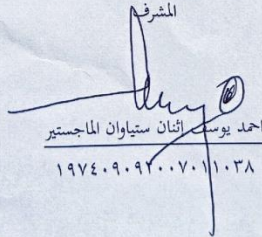 المشرف
احمد يوسف اثنان ستياوان الماجستير
١٩٧٤٠٩٠٩٢٠٠٧٠١١٠٣٨